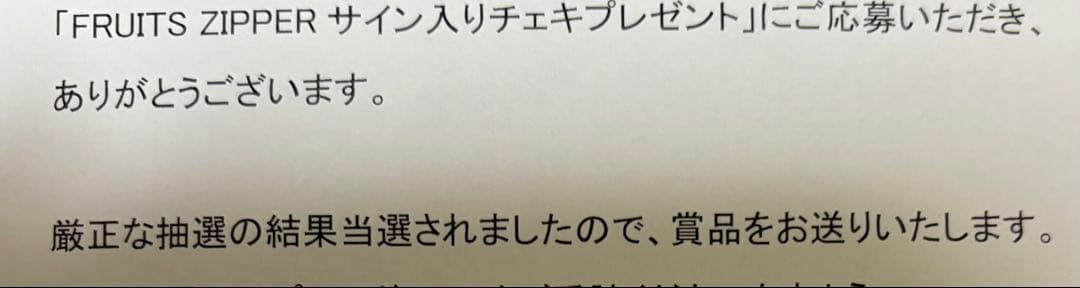 「FRUITS ZIPPER サイン入りチェキプレゼント」にご応募いただき、
ありがとうございます。
厳正な抽選の結果当選されましたので、賞品をお送りいたします。